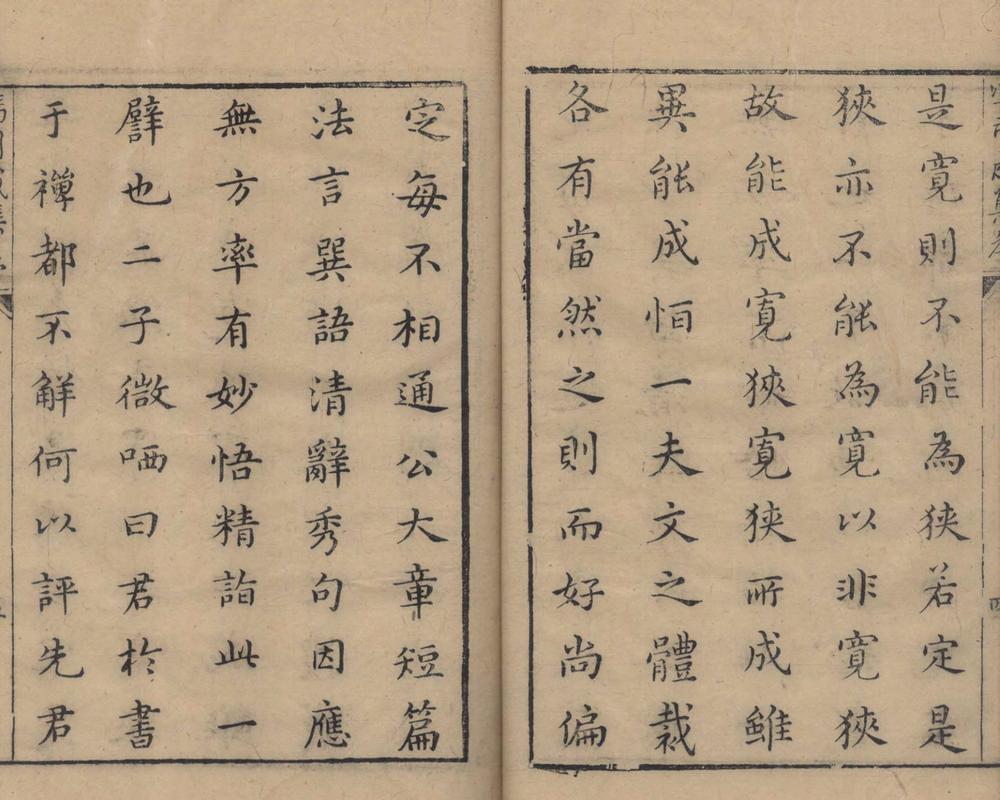 是寬則不能為狹若定是
狹亦不能為寬以非寬狹
故能成寬狹寬狹所成雖
異能成恒一夫文之體裁
各有當然之則而好尚偏
定每不相通公大章短篇
法言巽語清辭秀句因應
無方率有妙悟精詣此一
譬也二子微哂曰君於書
于禪都不解何以評先君